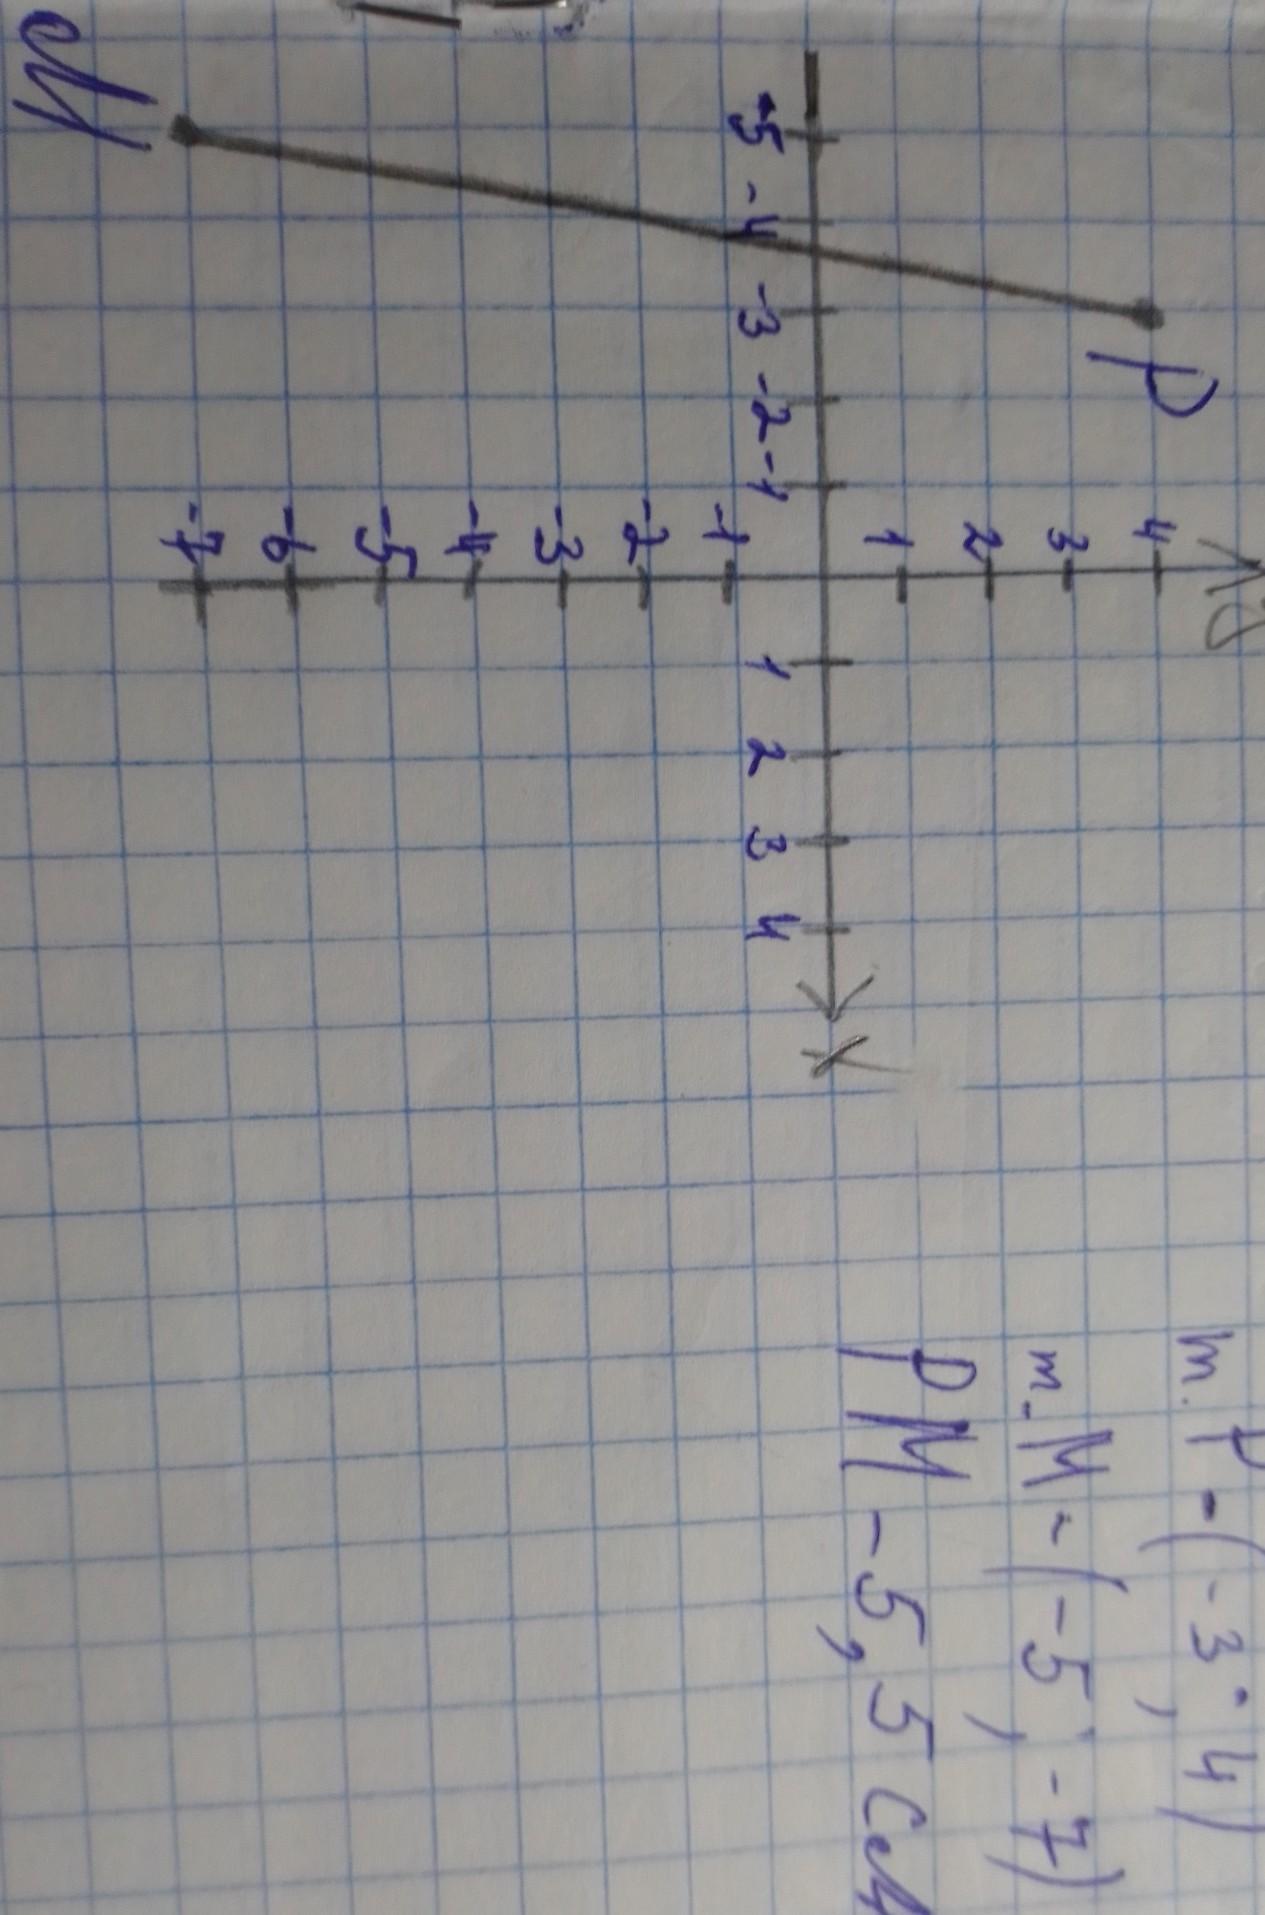 y
4
3
2
1
-5 -4 -3 -2 -1 1 2 3 4 x
-1
-2
-3
-4
-5
-6
-7
P
M
т. P - (-3; 4)
т. M - (-5; -7)
PM - 5,5 см